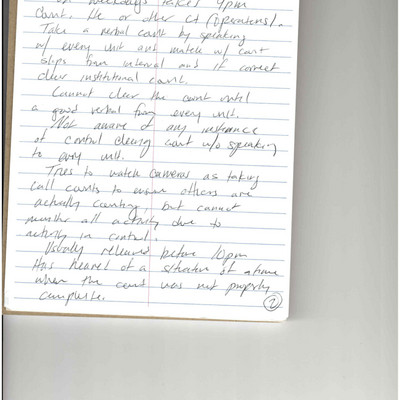 on weekdays takes 9pm
count. He or other C1 (operators).
Take a verbal count by speaking
w/ every unit and match w/ count
slips from internal and if correct
clear institutional count.
Cannot clear the count until
a good verbal from every unit.
Not aware of any instance
of control clearing count w/o speaking
to every unit.
Tries to watch cameras as taking
call counts to ensure others are
actually counting, but cannot
monitor all activity due to
activity in control.
Usually released before 10pm
Has heard of a situation of a time
when the count was not properly
complete.
2